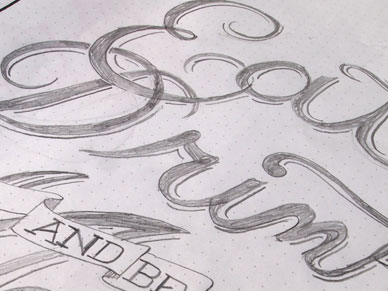 Eat
Drin
AND BE